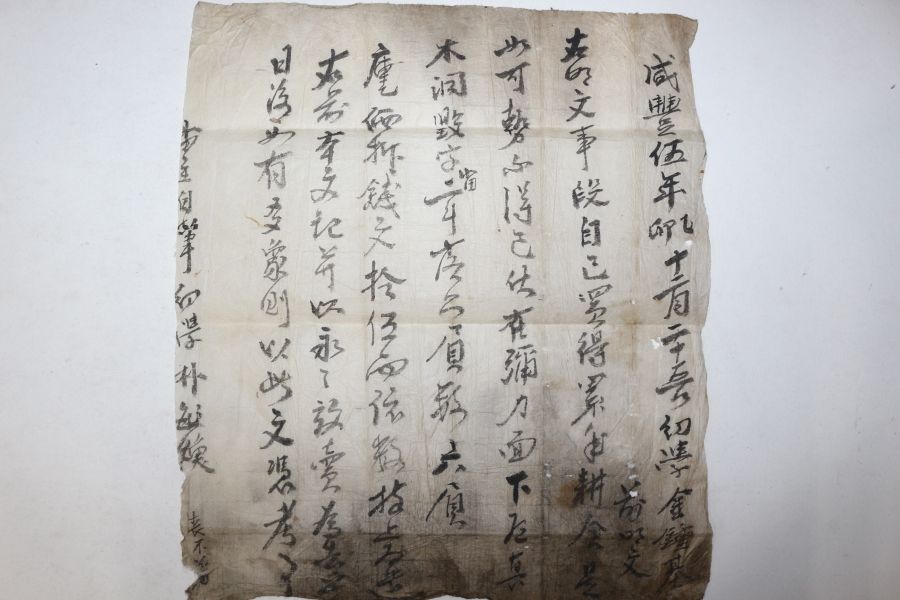 咸豐伍年乙卯十二月二十五日幼學金鍾基
前明文
右明文事段自己買得累年耕食是
如可勢不得已伏在彌力面下巨真
木洞毁字畓二斗落只負數六負
庫乙折錢文拾伍兩依數捧上是遣
右前本文記并以永永放賣爲去乎
日後如有爻象則以此文憑考事
畓主自筆幼學朴